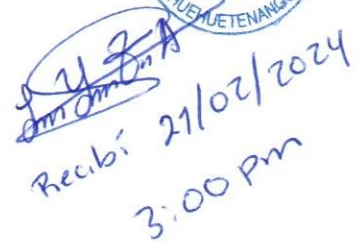 HUEHUETENANGO
Recibí 21/02/2024
3:00 pm